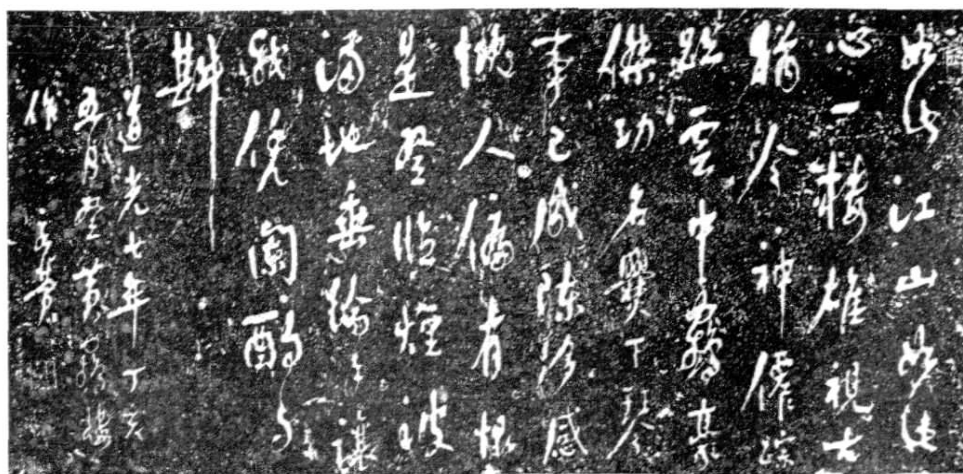 如此江山始快
心一樓雄視古
猶今神僊踪
跡雲中鶴豪
傑功名爨下琴
事已成陳彌感
慨人偏有
是登臨煙波
滿地垂綸在讓
我凭闌酒自
斟
道光七年丁亥
五月登黃鶴樓
作 吳榮光